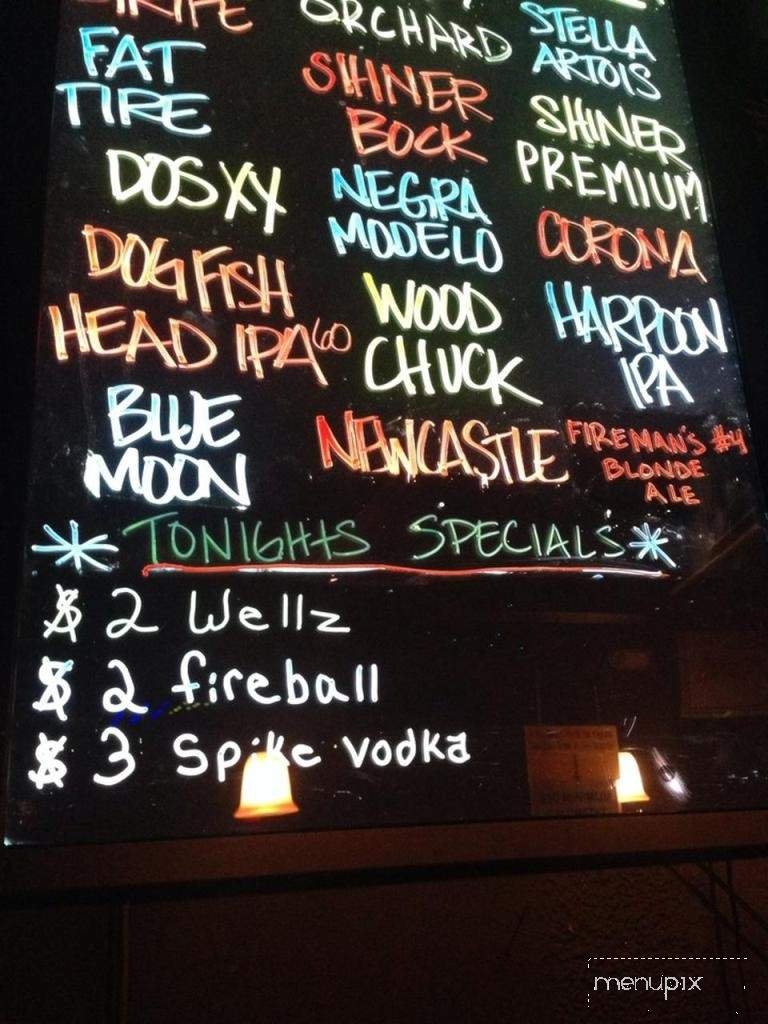 ORCHARD
STELLA
ARTOIS
FAT
TIRE
SHINER
BOCK
SHINER
PREMIUM
DOS XX
NEGRA
MODELO
CORONA
DOGFISH
HEAD IPA 60
WOOD
CHUCK
HARPOON
IPA
BLUE
MOON
NEWCASTLE
FIREMAN'S #4
BLONDE
ALE
* TONIGHTS SPECIALS *
$ 2 Wellz
$ 2 fireball
$ 3 Spike vodka
menupix